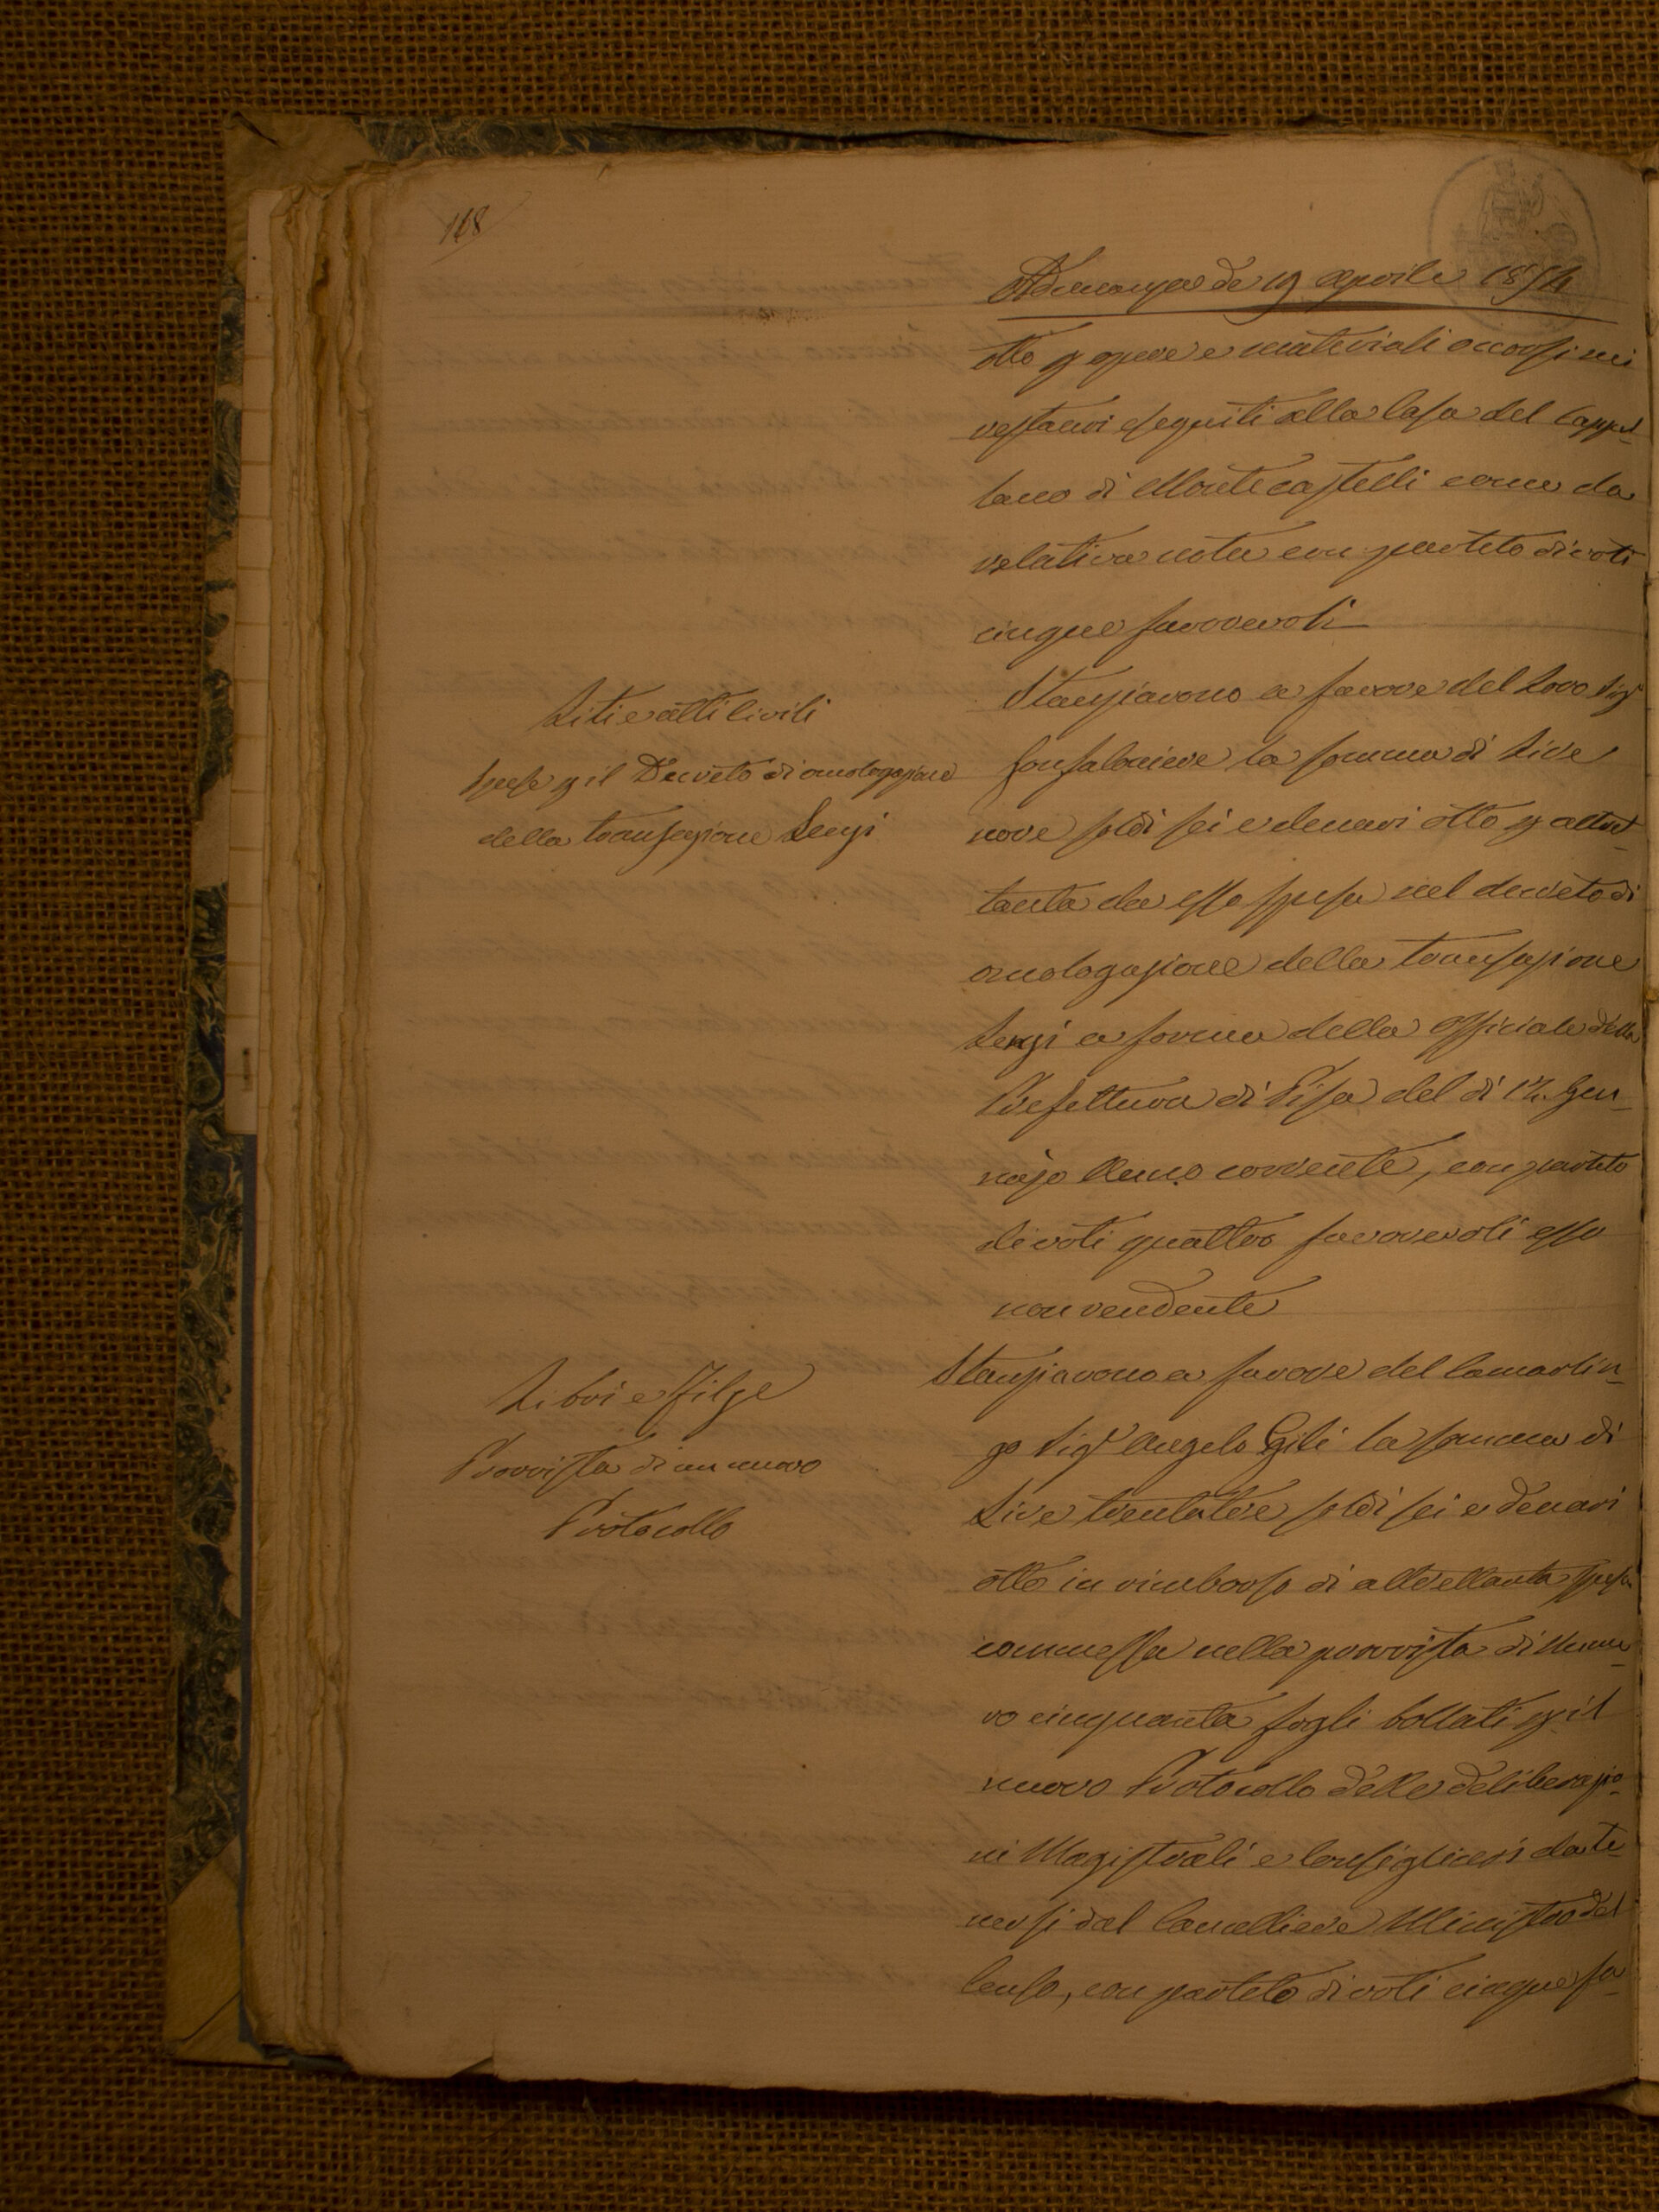 168
Adunanza de 19 aprile 1854
otto p opere e materiali occorsi nei
restauri eseguiti alla Casa del Cappel-
lano di Montecastelli come da
relativa nota con partito di voti
cinque favorevoli
Liti e atti Civili
Spese p il Decreto di omologazione
della transazione Lenzi
Stanziarono a favore del Loro Sigr
Gonfaloniere la somma di Lire
nove soldi sei e denari otto p altret-
tanta da esso spesa nel decreto di
omologazione della transazione
Lenzi a forma della officiale della
Prefettura di Pisa del dì 12. Gen-
najo Anno corrente, con partito
di voti quattro favorevoli esso
non rendente
Libri e Filze
Provvista di un nuovo
Protocollo
Stanziarono a favore del Camarlin-
go Sigr Angelo Gili la somma di
Lire trentatre soldi sei e denari
otto in rimborso di altrettanta spesa
commessa nella provvista di Nume-
ro cinquanta fogli bollati p il
nuovo Protocollo delle deliberazio-
ni Magistrali e Consigliari da te-
nersi dal Cancelliere Ministro del
Censo, con partito di voti cinque fa-